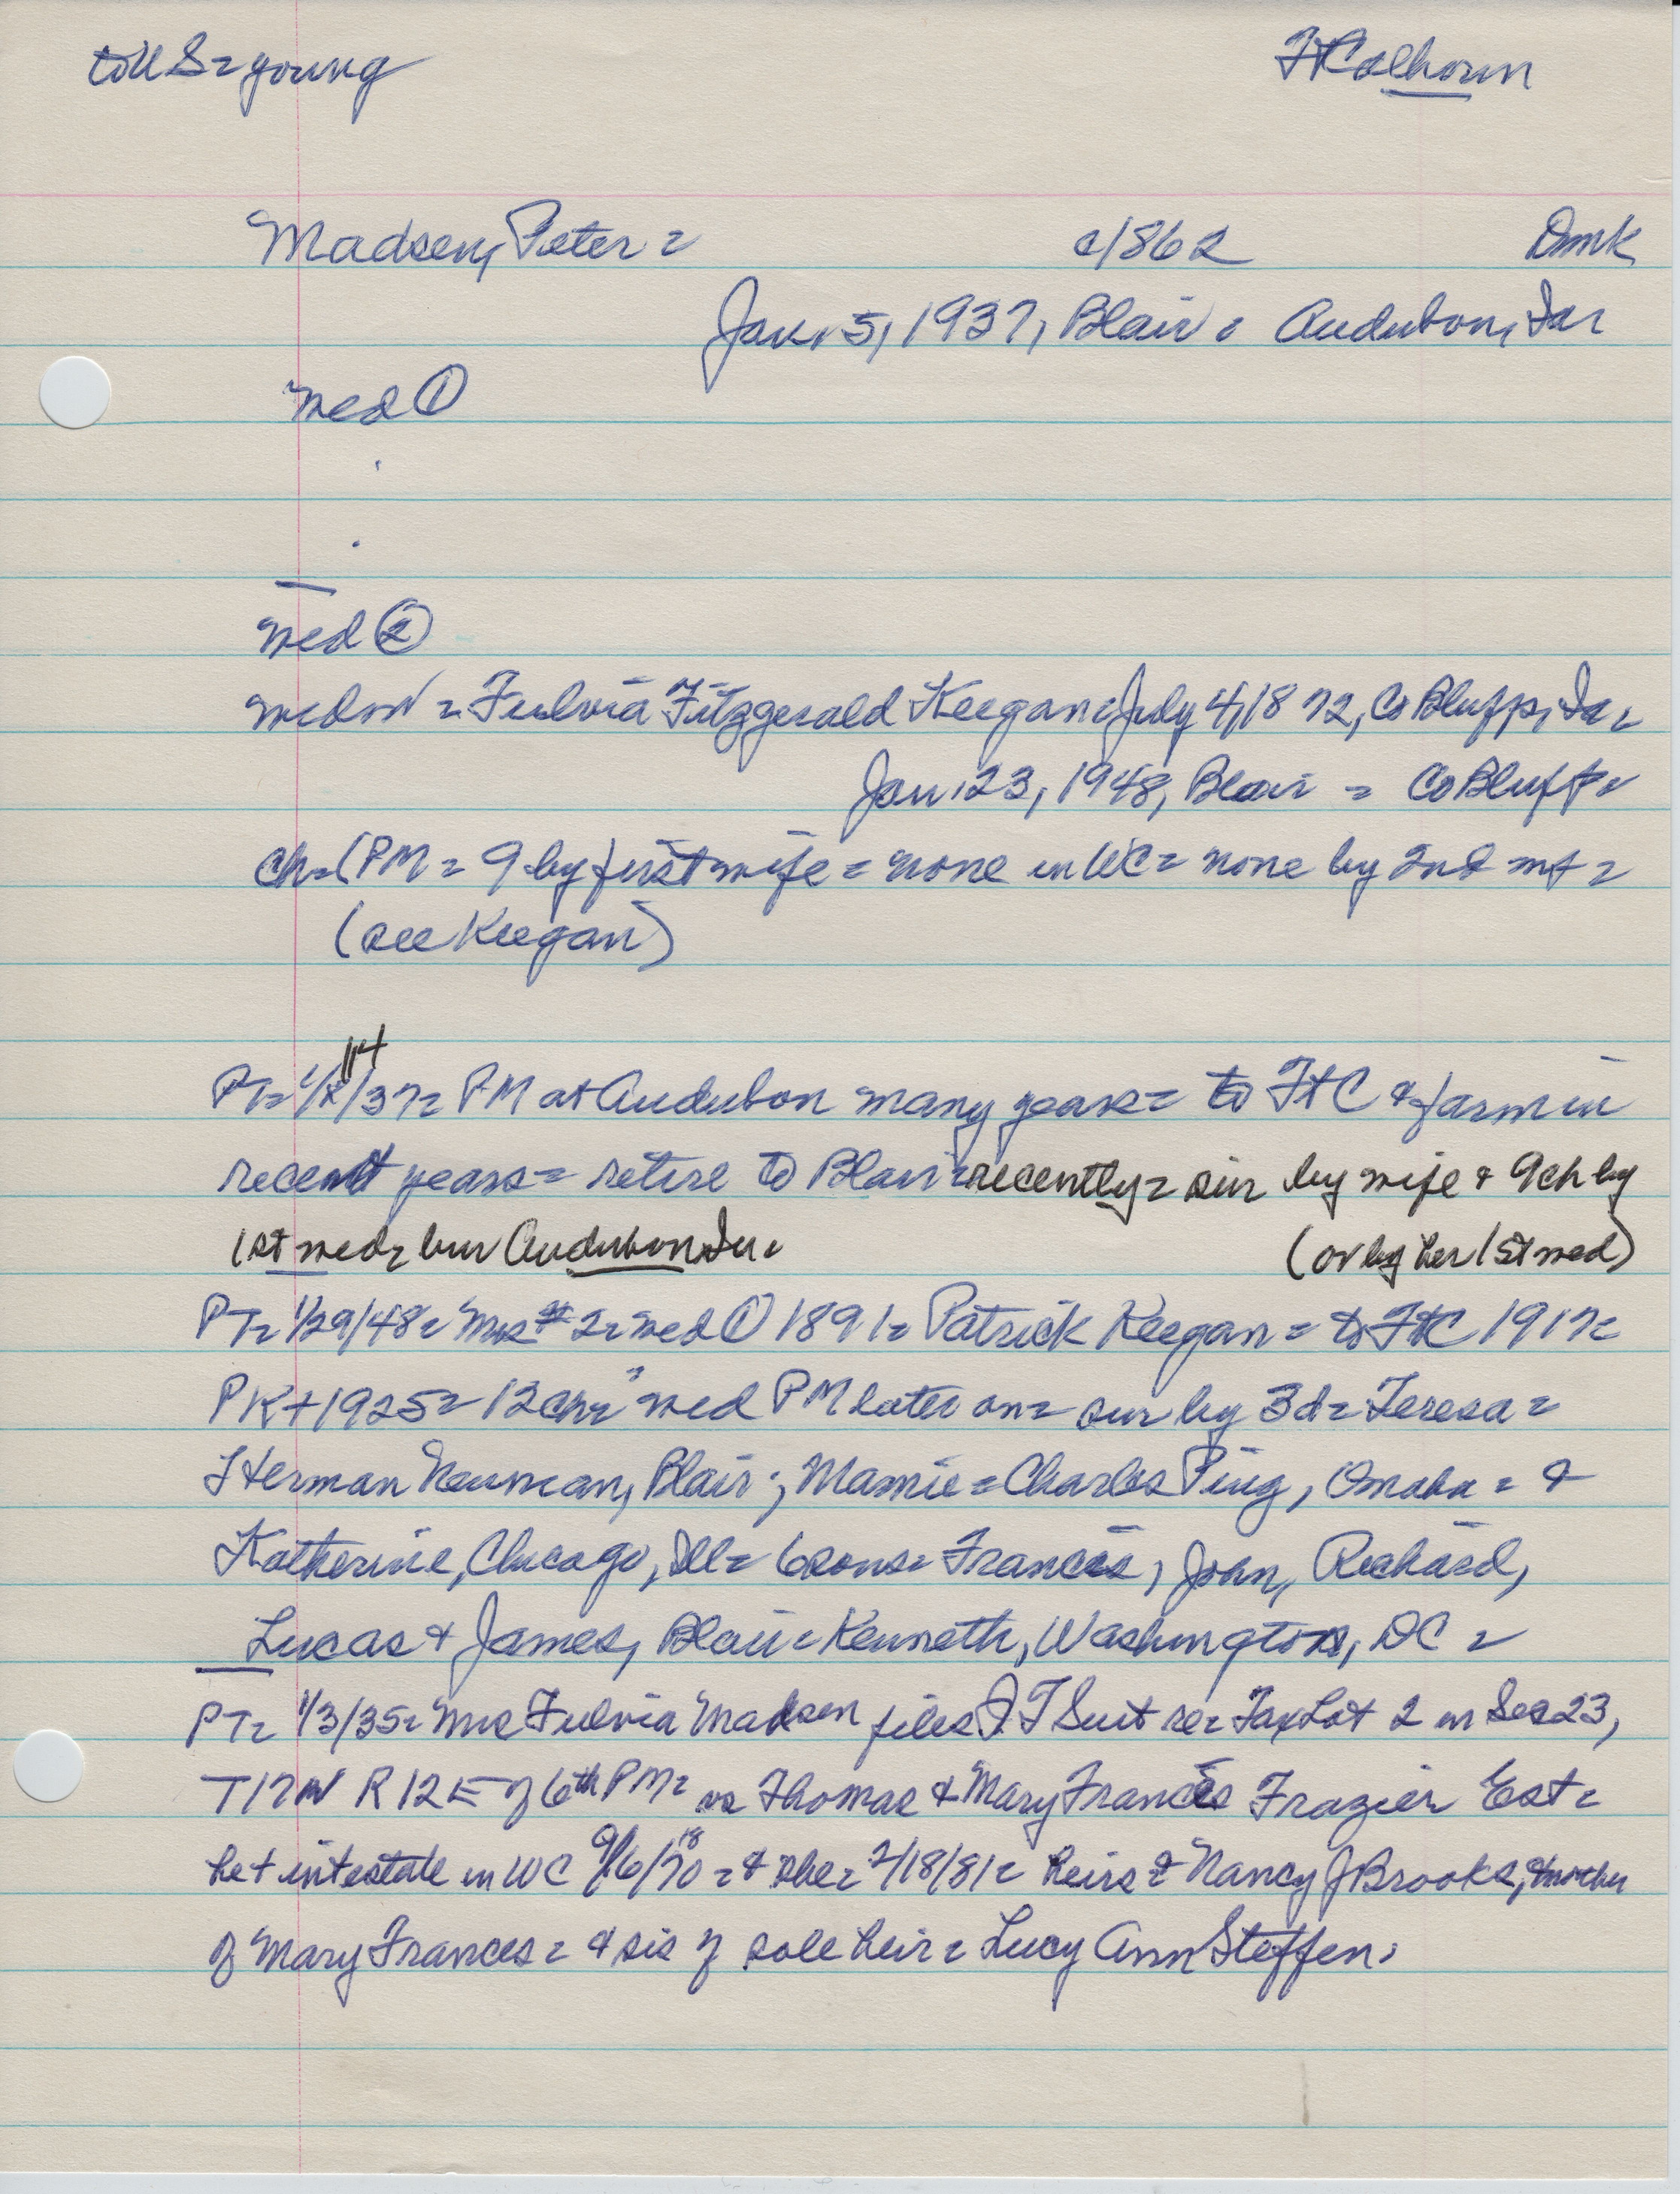 till S = young
Ft Calhoun
Madsen, Peter = c1862 Dmk
Jan. 5, 1937, Blair = Audubon, Ia =
wed ①
wed ②
= Fulvia Fitzgerald Keegan = July 4, 1872, Co Bluffs, Ia =
Jan. 23, 1948, Blair = Co Bluffs =
ch = (PM = 9 by first wife = none in WC = none by 2nd =
(see Keegan)
PT = 1/14/37 = PM at Audubon many years = to Ft C & farm in
recent years = retire to Blair = recently = sur by wife & 9 ch by
1st wed = bur Audubon Ia = (or by her 1st wed)
PT = 1/29/48 = Mrs # 2 = wed ① 1891 = Patrick Keegan = to Ft C 1917 =
PK + 1925 = 12 ch = wed PM later on = sur by 3 d = Teresa =
Herman Neuman, Blair; Mamie = Charles Ping, Omaha = &
Katherine, Chicago, Ill = 6 sons = Francis, John, Richard,
Lucas & James, Blair = Kenneth, Washington, DC =
PT = 1/3/35 = Mrs Fulvia Madsen files QT Suit re = Tax Lot 2 in Sec 23,
T17N R12E of 6th PM = vs Thomas & Mary Frances Frazier Est =
he + intestate in WC 9/6/1870 = & she = 2/18/81 = heirs = Nancy J Brooks, mother
of Mary Frances = & sis of sole heir = Lucy Ann Steffen.